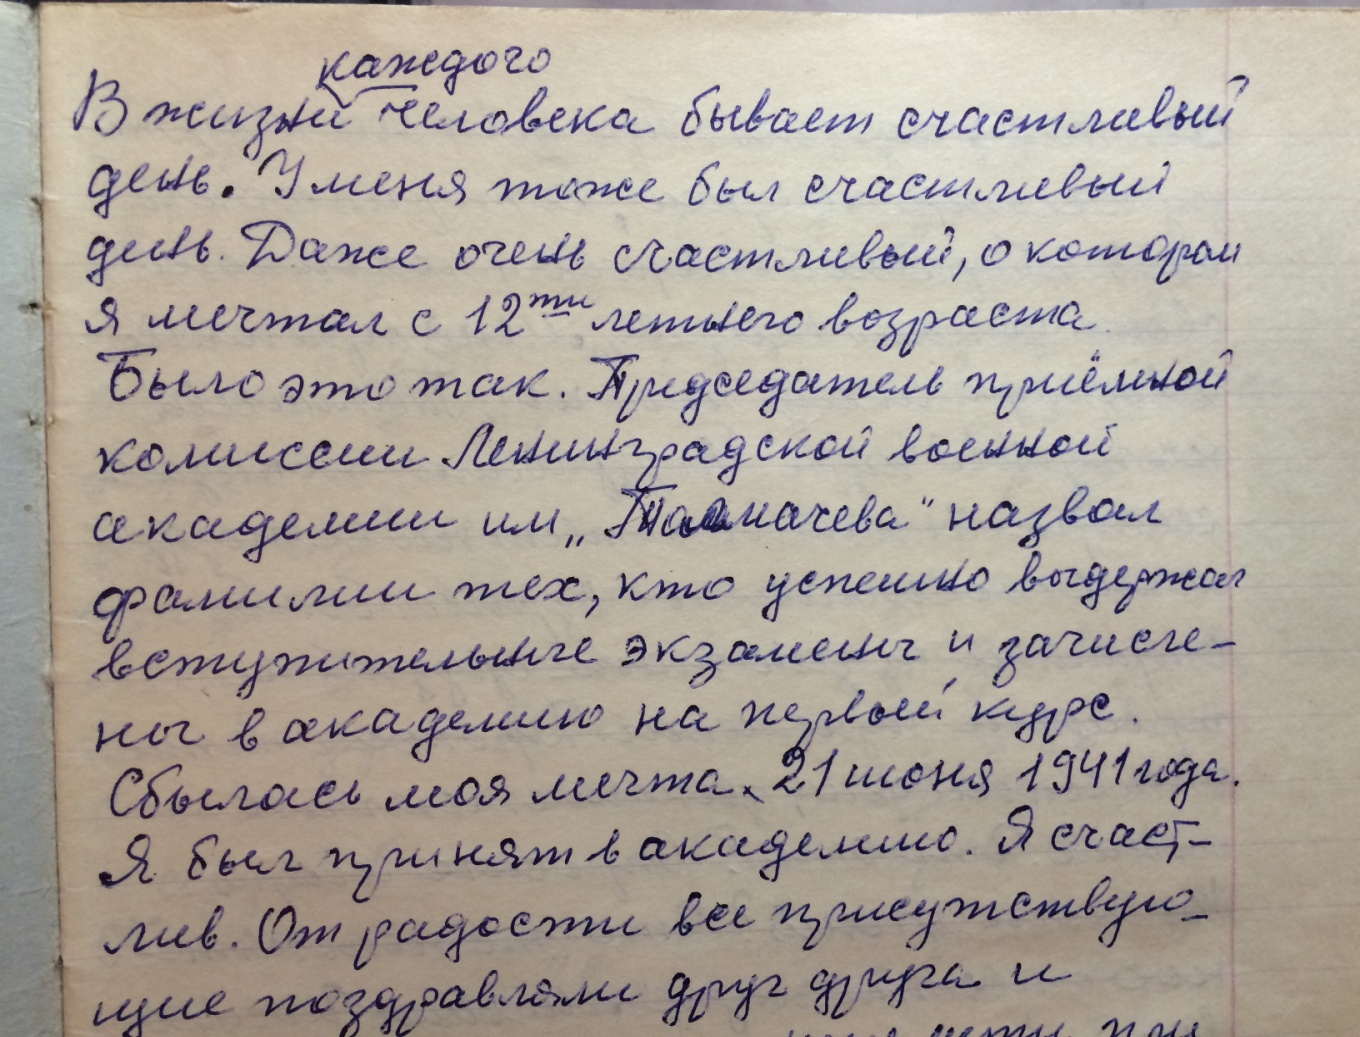 каждого
В жизни человека бывает счастливый
день. У меня тоже был счастливый
день. Даже очень счастливый, о котором
я мечтал с 12ти летнего возраста.
Было это так. Председатель приёмной
комиссии Ленинградской военной
академии им „Толмачева" назвал
фамилии тех, кто успешно выдержал
вступительные экзамены и зачисле-
ны в академию на первый курс.
Сбылась моя мечта. 21 июня 1941 года.
Я был принят в академию. Я счаст-
лив. От радости все присутствую-
щие поздравляли друг друга и